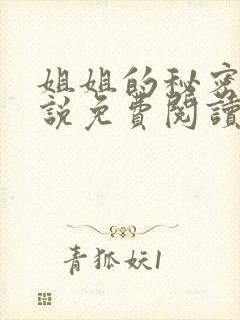 姐姐的秘密
說免費閱讀
青狐妖1